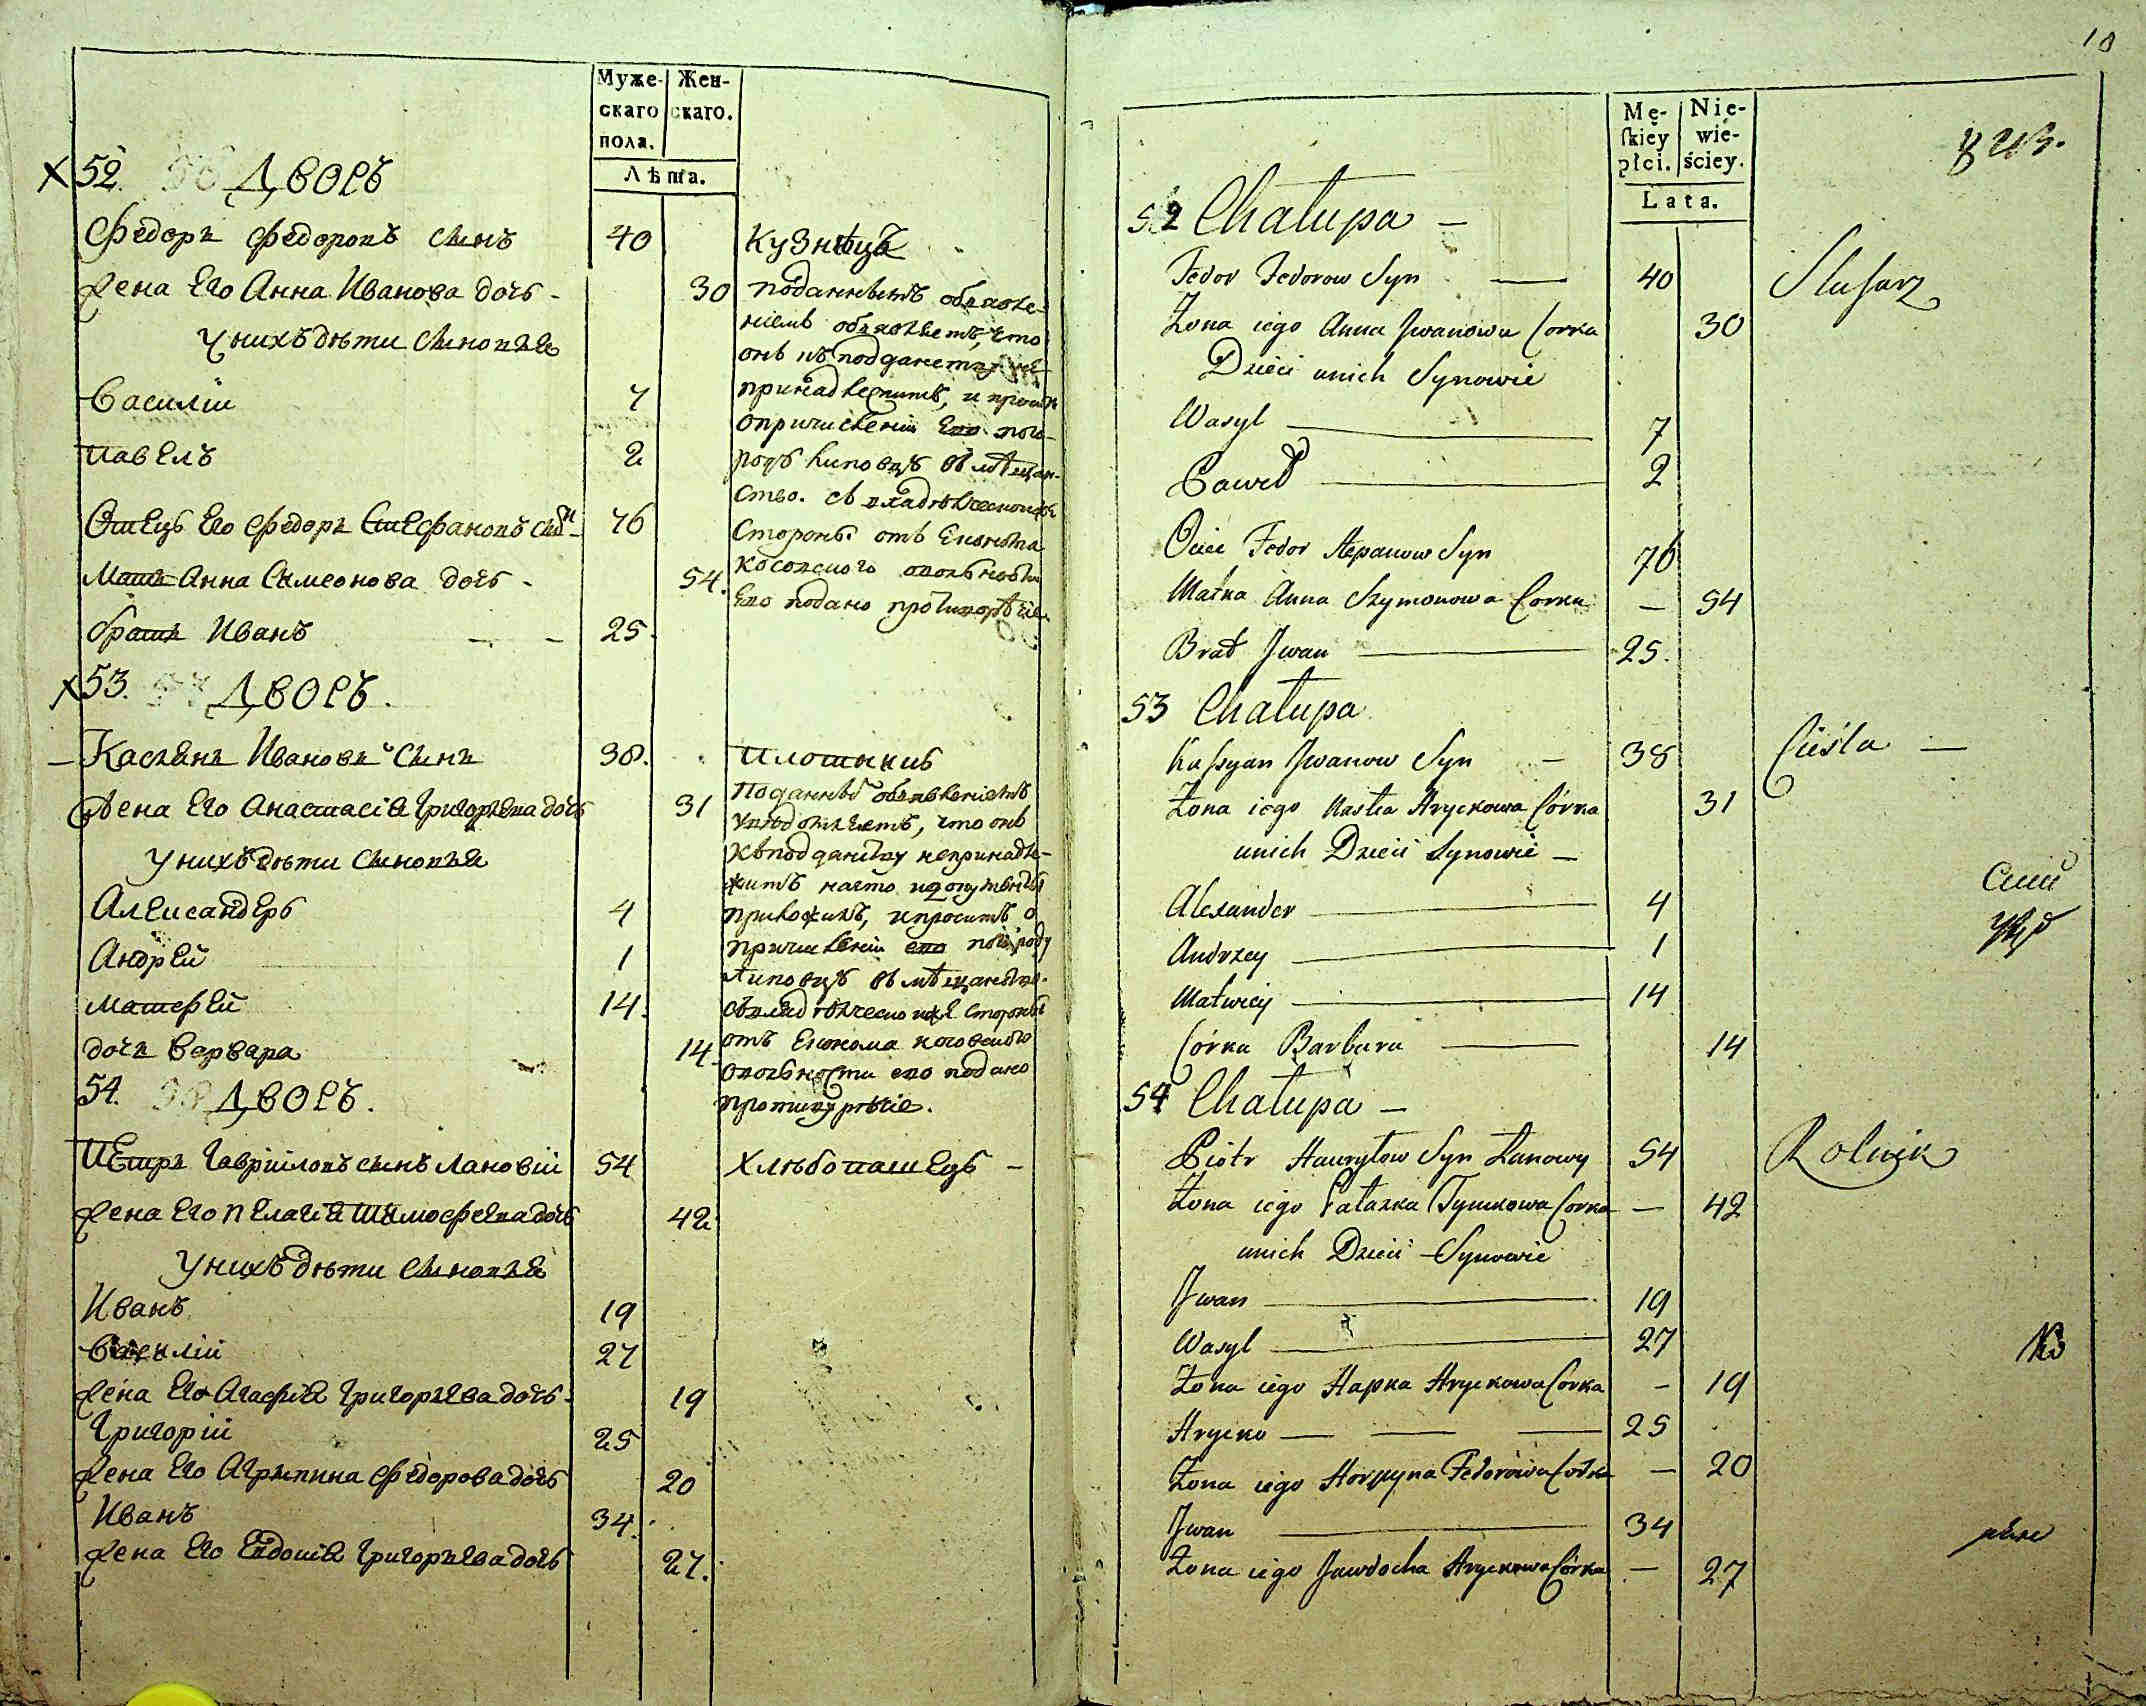 Муже-
скаго
пола.
Жен-
скаго.
Лѣта.
52. Дворъ
Федоръ Федоровъ сынъ 40 Кузнецъ
Жена Его Анна Иванова дочь 30
У нихъ дѣти сыновья
Василій 7
Павелъ 2
Отецъ Его Федоръ Стефановъ сынъ 76
Мать Анна Симеонова дочь 54.
братъ Иванъ 25.
поданнымъ объявле-
ніемъ объявляетъ, что
онъ къ подданству не
принадлежитъ, и проситъ
о причисленіи Его по го-
роду Липовцу въ мѣщан-
ство. съ владѣльческой же
Стороны отъ Економа
подано
53. Дворъ.
Касьянъ Ивановъ Сынъ 38. Плотникъ
Жена Его Анастасія Григорьева дочь 31
У нихъ дѣти сыновья
Александеръ 4
Андрей 1
Матфей 14.
дочь Варвара 14.
Поданнымъ объявленіемъ
что онъ
къ подданству непринадле-
житъ на что
и проситъ о
причисленіи его по городу
Липовцу въ мѣщанство.
Стороны
отъ Економа
его подано
54. Дворъ.
Петръ Гавріиловъ сынъ Лановій 54 Хлѣбопашецъ
Жена Его Пелагія Тимофеева дочь 42
У нихъ дѣти сыновья
Иванъ 19
Василій 27
Жена Его Агафія Григорьева дочь 19
Григорій 25
Жена Его Агрыпина Федорова дочь 20
Иванъ 34.
Жена Его Евдокія Григорьева дочь 27.
10
Mę-
ſkiey
płci.
Nie-
wie-
ściey.
Lata.
52 Chałupa
Fedor Fedorow Syn 40 Slusarz
Żona iego Anna Jwanowa Corka 30
Dzieci unich Synowie
Wasyl 7
Paweł 2
Ociec Fedor Stepanow Syn 76
Matka Anna Szymonowa Corka — 54
Brat Jwan 25.
53 Chałupa
Kaſsyan Jwanow Syn 38 Cieśla
Żona iego Nastia Hryckowa Córka 31
unich Dzieci Synowie
Alexander 4
Andrzey 1
Matwiey 14
Córka Barbara 14
54 Chałupa
Piotr Hawryłow Syn Łanowy 54 Rolnik
Żona iego Pałazka Tymkowa Corka — 42
unich Dzieci Synowie
Jwan 19
Wasyl 27
Żona iego Hapka Hryckowa Corka — 19
Hrycko 25
Żona iego Horpyna Fedorowa Corka — 20
Jwan 34
Żona iego Jawdocha Hryckowa Córka — 27